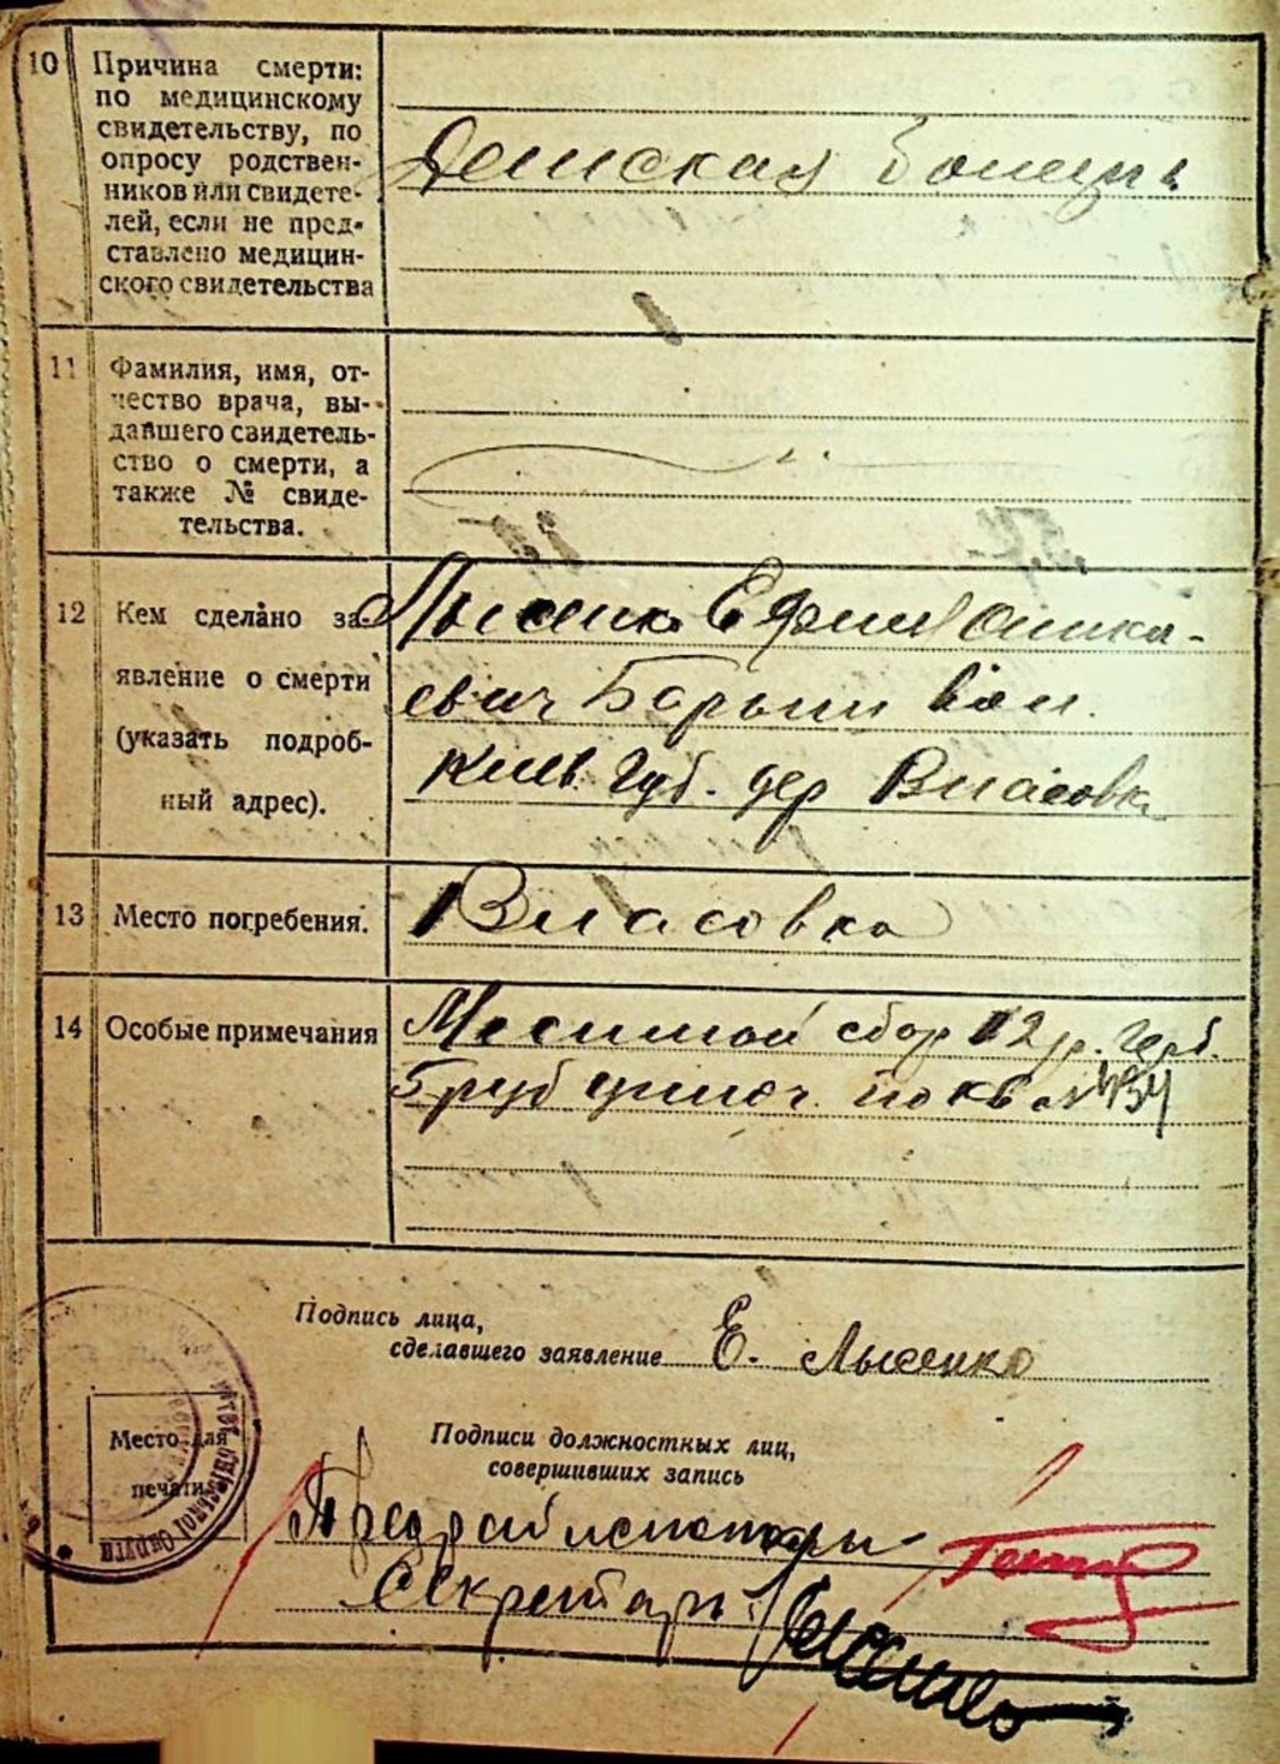 10
Причина смерти:
по медицинскому
свидетельству, по
опросу родствен-
ников или свидете-
лей, если не пред-
ставлено медицин-
ского свидетельства
Детская болезнь
11
Фамилия, имя, от-
чество врача, вы-
давшего свидетель-
ство о смерти, а
также № свиде-
тельства.
12
Кем сделано за-
явление о смерти
(указать подроб-
ный адрес).
Лысенко Ефим
евич Барыш вол.
Киев. губ. дер Власовка
13
Место погребения.
Власовка
14
Особые примечания
Местный сбор 2 р. герб.
по кв
Подпись лица,
сделавшего заявление
Е. Лысенко
Место для
печати
Подписи должностных лиц,
совершивших запись
Секретарь
Округи